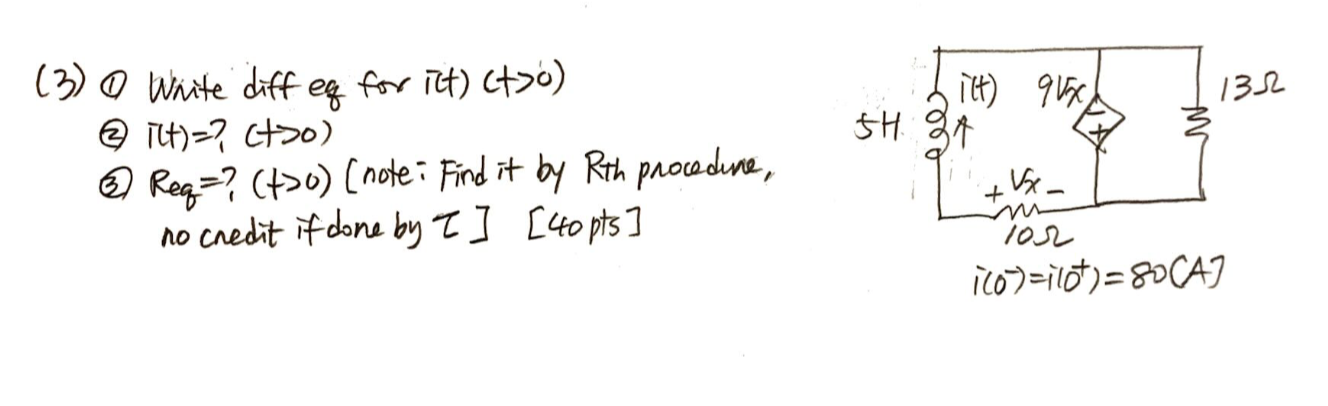 (3) ① Write diff eq for i(t) (t>0)
② i(t)=? (t>0)
③ Req=? (t>0) [note: Find it by Rth procedure,
no credit if done by τ] [40 pts]
5H
i(t)
9Vx
- +
13Ω
+ Vx -
10Ω
i(0⁻)=i(0⁺)=80[A]